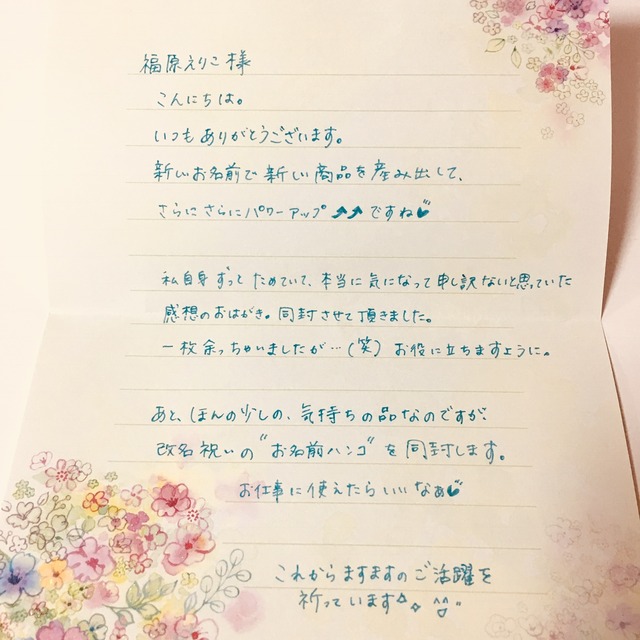 福原えりこ様
こんにちは。
いつもありがとうございます。
新しいお名前で新しい商品を産み出して、
さらにさらにパワーアップ⤴⤴ですね♥
私自身ずっとためていて、本当に気になって申し訳ないと思っていた
感想のおはがき。同封させて頂きました。
一枚余っちゃいましたが…(笑) お役に立ちますように。
あと、ほんの少しの、気持ちの品なのですが、
改名祝いの"お名前ハンコ"を同封します。
お仕事に使えたらいいなぁ♥
これからますますのご活躍を
祈っています☆。^^"